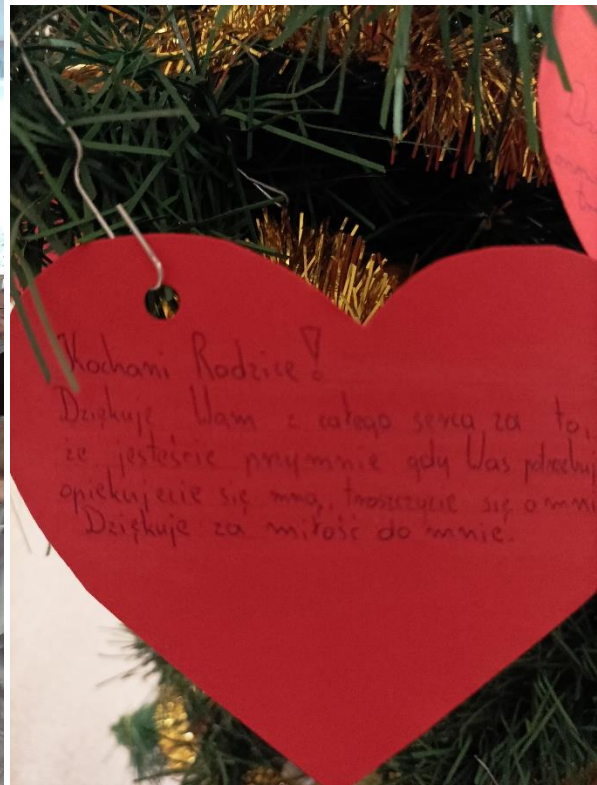 Kochani Rodzice!
Dziękuję Wam z całego serca za to,
że jesteście przymnie gdy Was potrzebuj
opiekujecie się mną, troszczycie się o mni
Dziękuje za miłość do mnie.